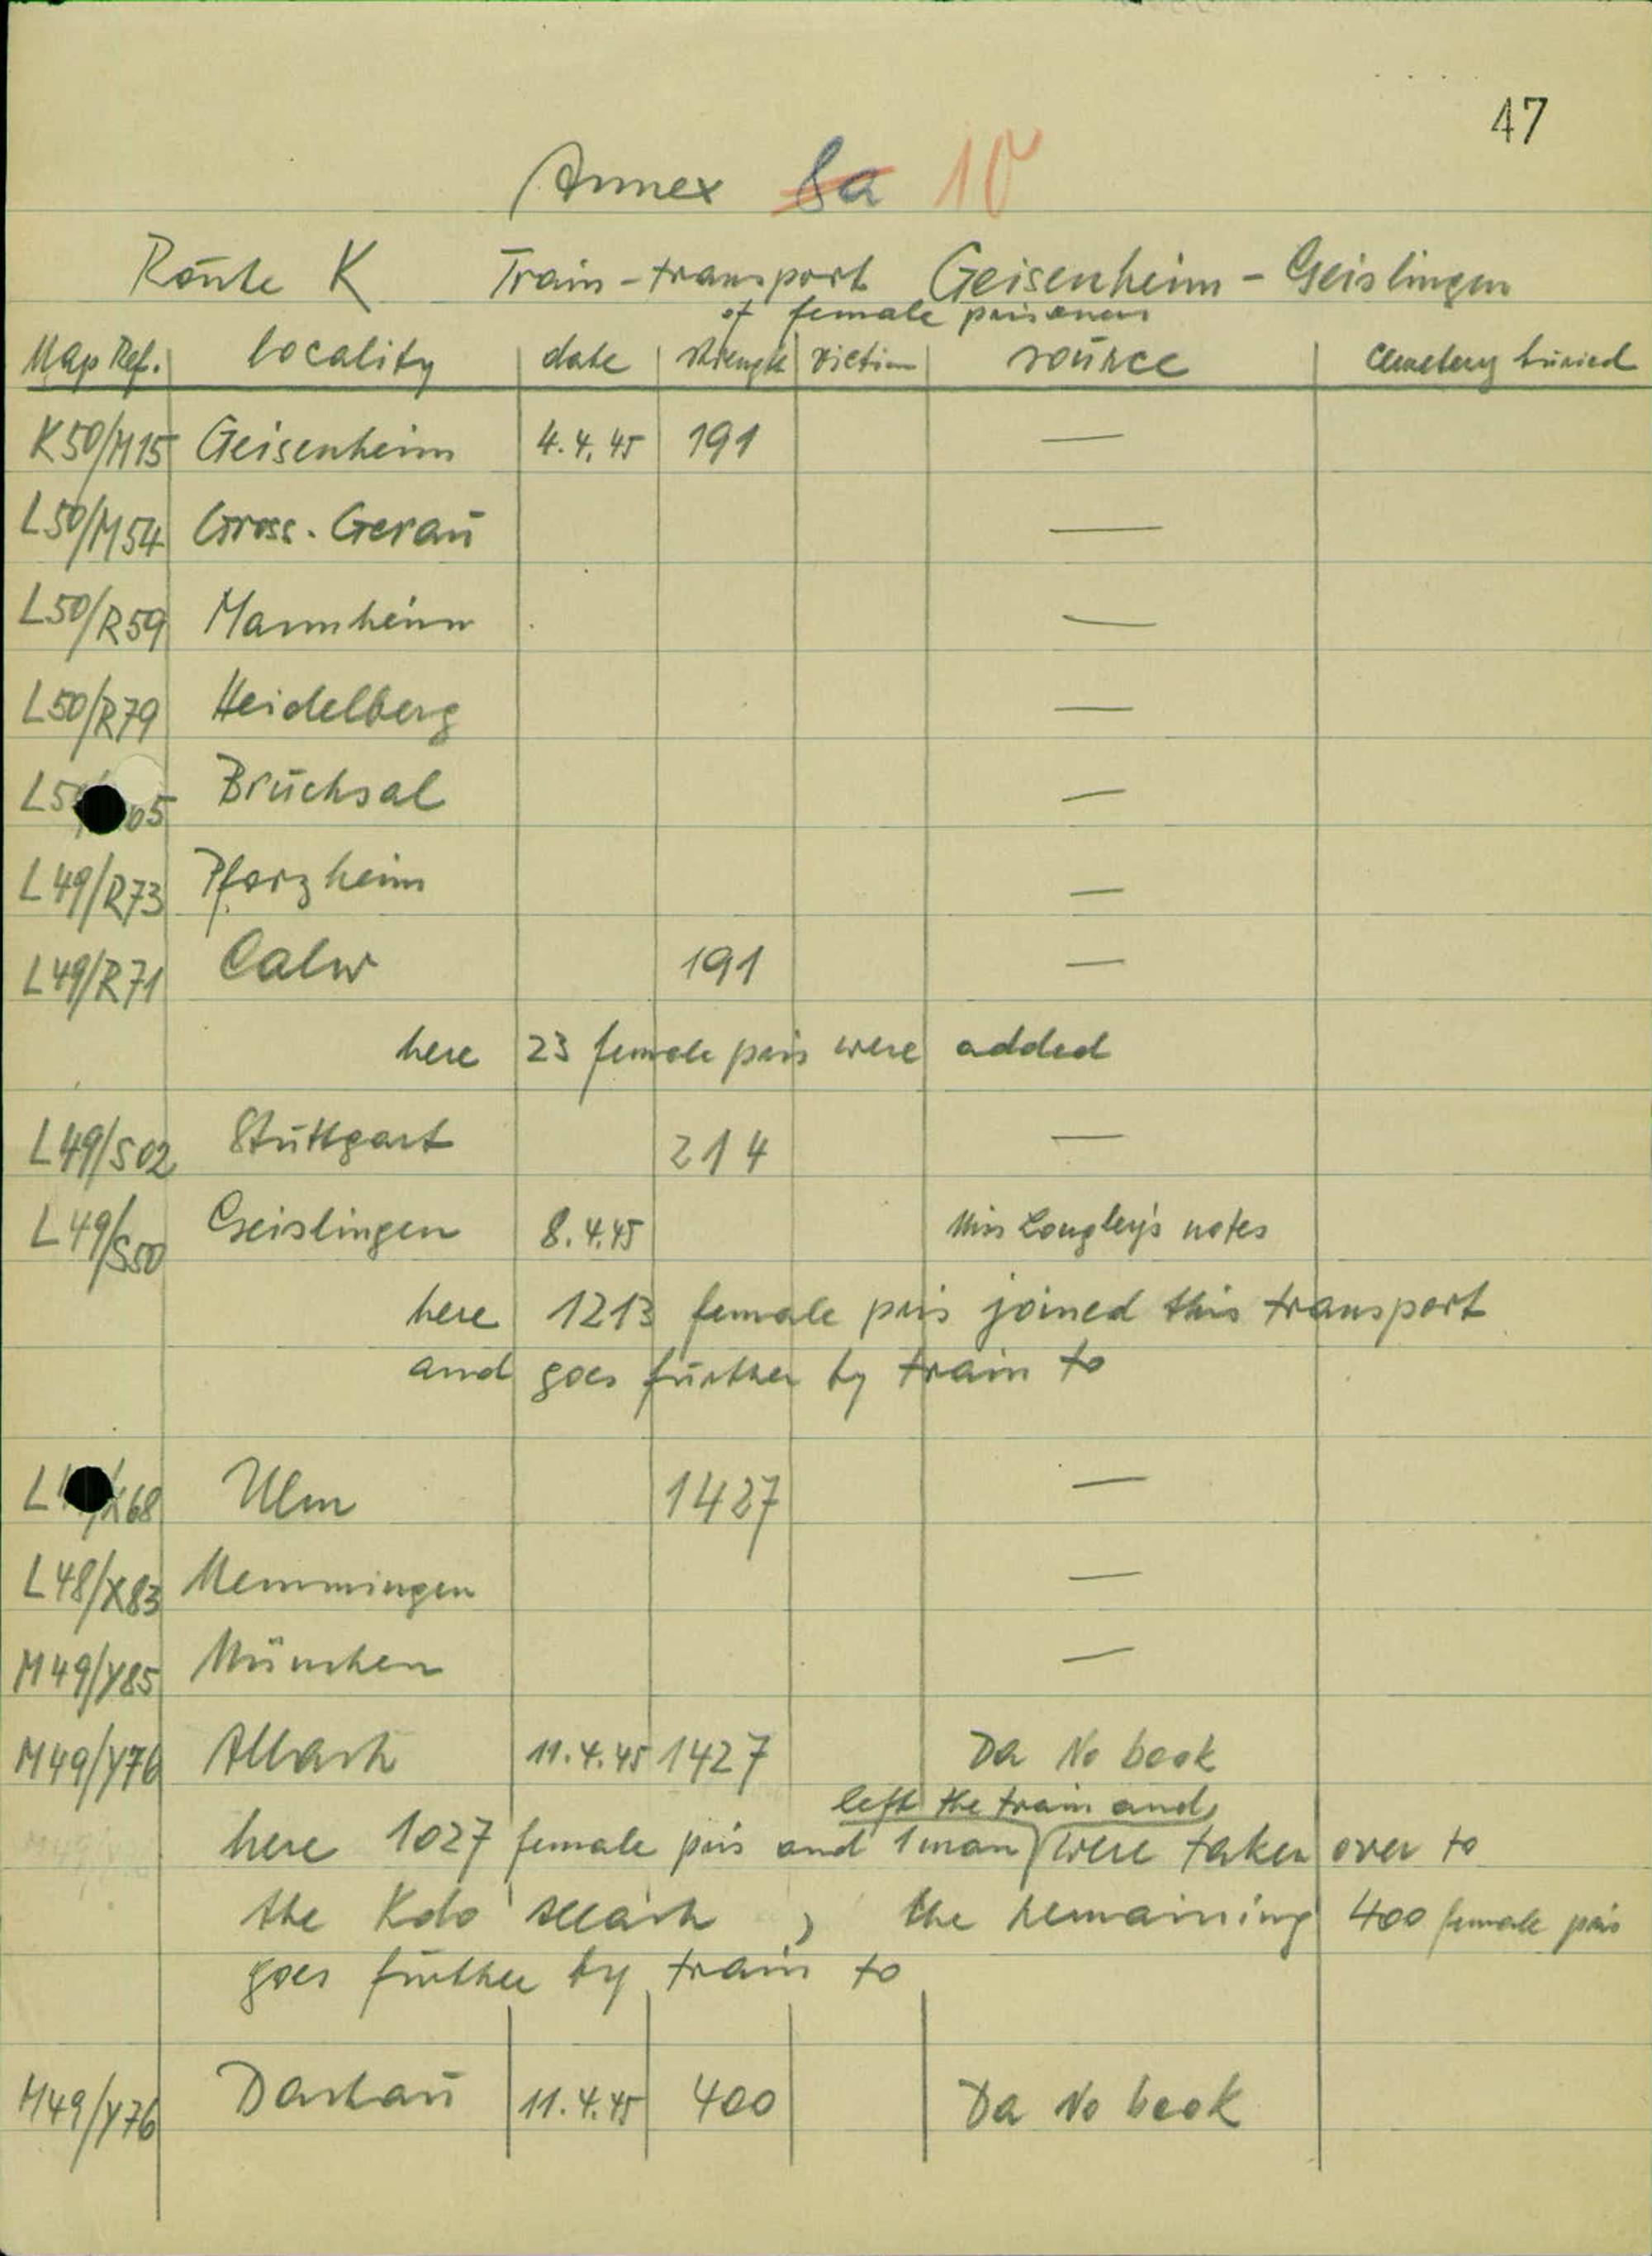 47
Annex 8a 10
Route K Train-transport Geisenheim - Geislingen
of female prisoners
Map Ref. locality date strength victim source Cemetery buried
K50/M15 Geisenheim 4.4.45 191 —
L50/M54 Gross-Gerau —
L50/R59 Mannheim —
L50/R79 Heidelberg —
Bruchsal —
L49/R73 Pforzheim —
L49/R71 Calw 191 —
here 23 female pris were added
L49/S02 Stuttgart 214 —
L49/S50 Geislingen 8.4.45 Miss Longley's notes
here 1213 female pris joined this transport
and goes further by train to
Ulm 1427 —
L48/X83 Memmingen —
M49/Y85 München —
M49/Y76 Allach 11.4.45 1427 Da No book
left the train and
here 1027 female pris and 1 man were taken over to
the Kdo Allach, the remaining 400 female pris
goes further by train to
M49/Y76 Dachau 11.4.45 400 Da No book